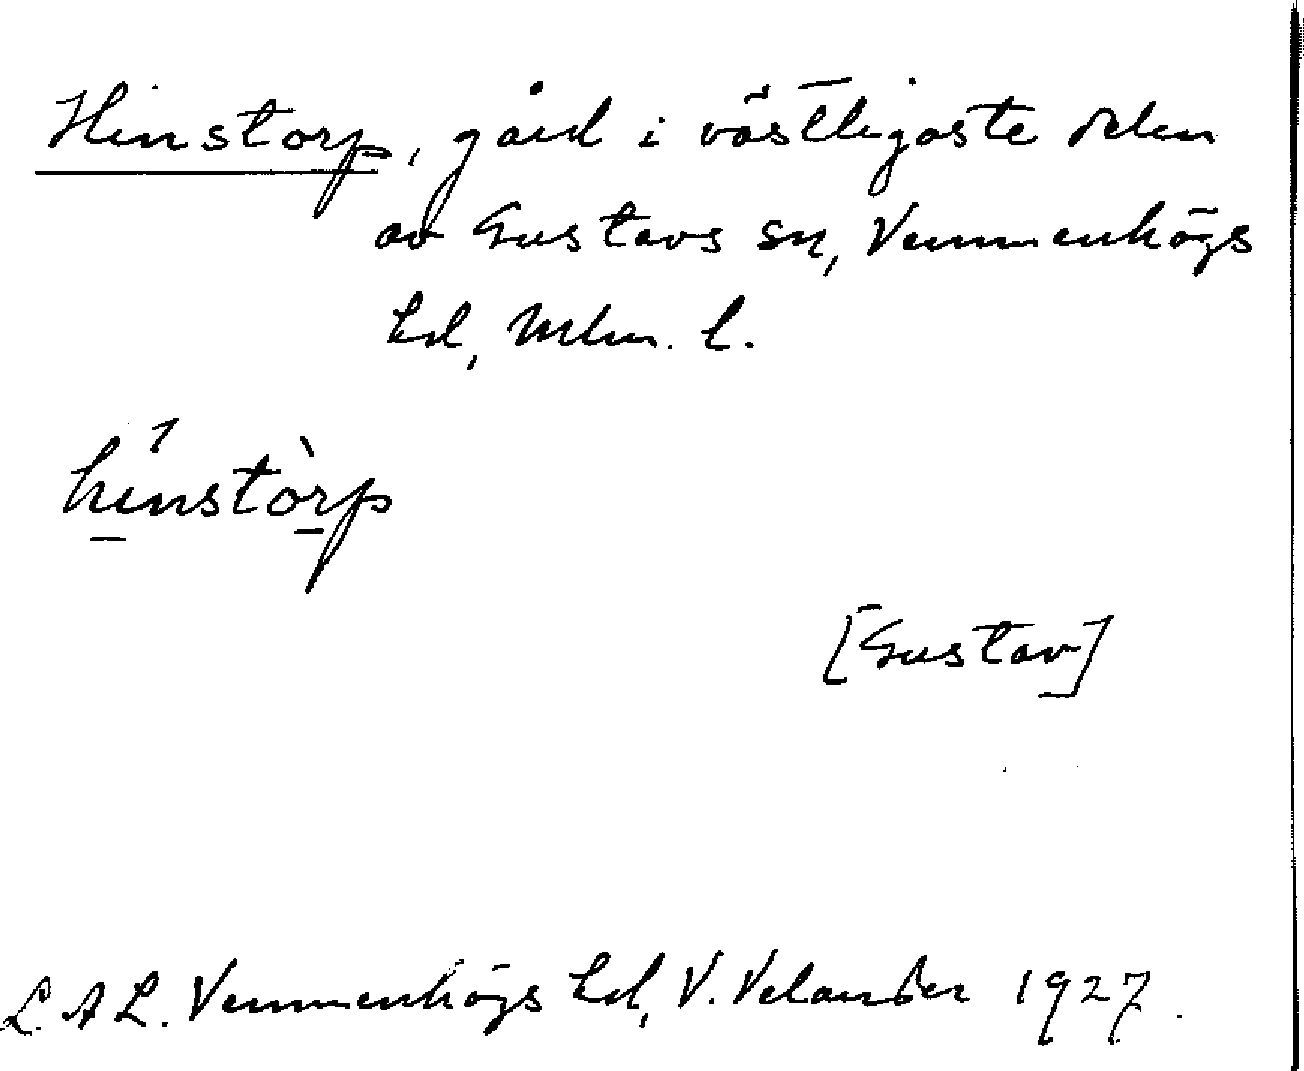 Hinstorp, gård i västligaste delen
av Gustavs sn, Vemmenhögs
hd, Mlm. l.
hínstòrp
[Gustav]
L.A.L. Vemmenhögs hd, V. Velander 1927.